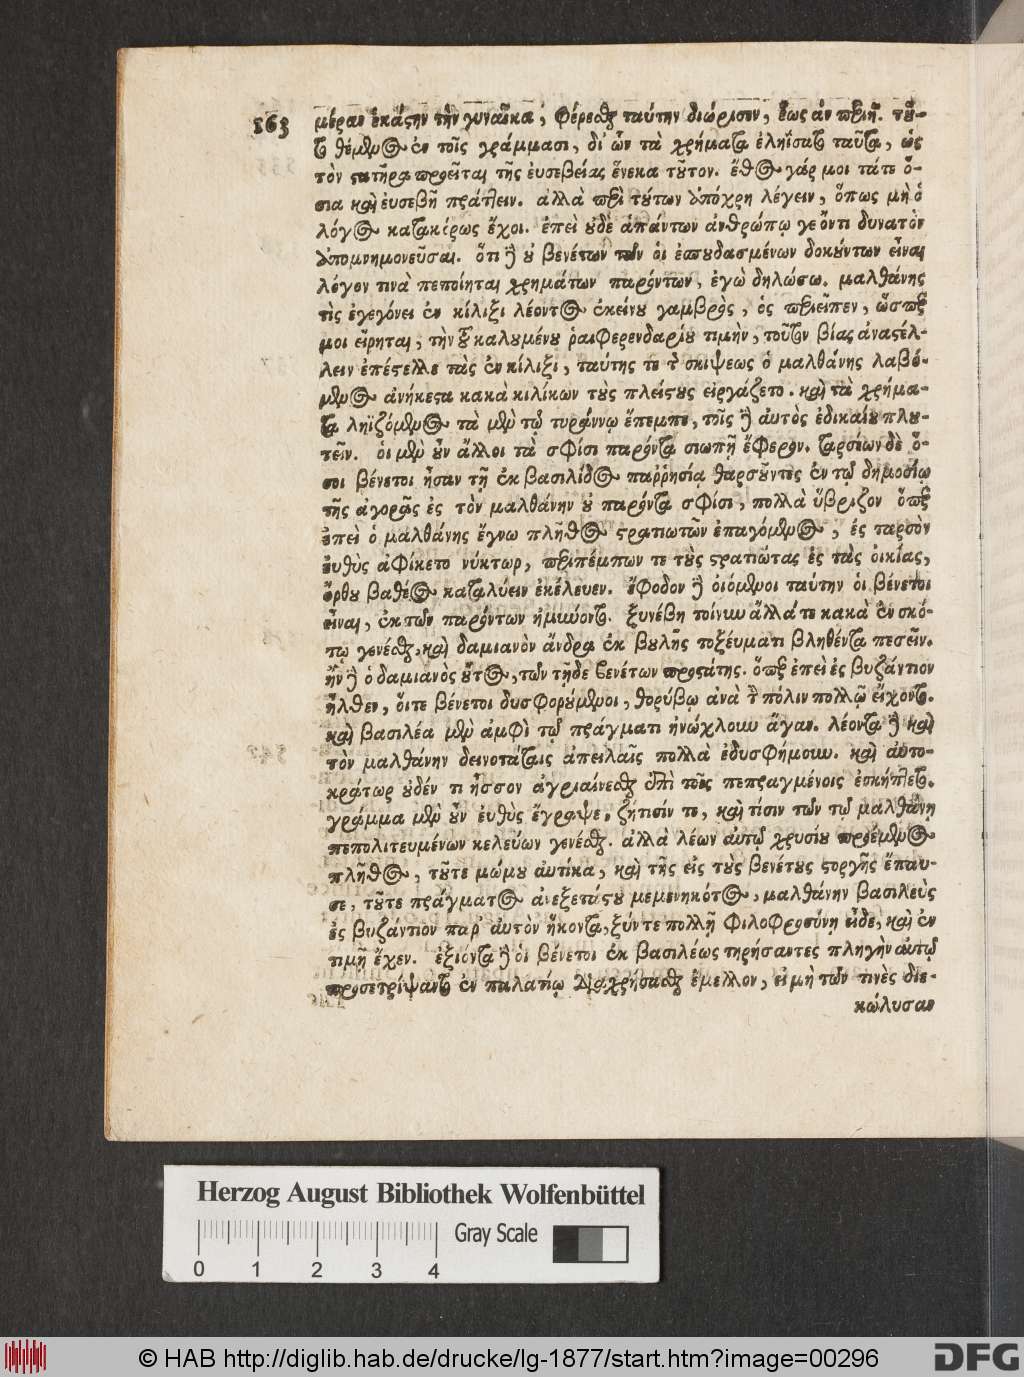 563 μέραν ἑκάστην τὴν γυναῖκα, φέρεσθαι ταύτην διώρισεν, ἕως ἂν περιῇ. τοῦ-
το θέμενος ἐν τοῖς γράμμασι, δι' ὧν τὰ χρήματα ἐληΐσατο ταῦτα, ὡς
τὸν σωτῆρα προεῖται τῆς εὐσεβείας ἕνεκα τοῦτον. ἔθος γάρ μοι τά τε ὅ-
σια καὶ εὐσεβῆ πράττειν. ἀλλὰ περὶ τούτων ἀπόχρη λέγειν, ὅπως μὴ ὁ
λόγος κατακόρως ἔχοι. ἐπεὶ οὐδὲ ἁπάντων ἀνθρώπῳ γε ὄντι δυνατὸν
ἀπομνημονεῦσαι. ὅτι δὲ οὐ βενέτων τῶν οἱ ἐσπουδασμένων δοκούντων εἶναι
λόγον τινὰ πεποίηται χρημάτων παρόντων, ἐγὼ δηλώσω. μαλθάνης
τὶς ἐγεγόνει ἐν κίλιξι λέοντος ἐκείνου γαμβρὸς, ὃς περιεῖπεν, ὥσπερ
μοι εἴρηται, τὴν τοῦ καλουμένου ῥαιφερενδαρίου τιμὴν, τοῦτον βίας ἀναστέλ-
λειν ἐπέστελλε τὰς ἐν κίλιξι, ταύτης τε τῆς σκίψεως ὁ μαλθάνης λαβό-
μενος ἀνήκεστα κακὰ κιλίκων τοὺς πλείστους εἰργάζετο. καὶ τὰ χρήμα-
τα ληϊζόμενος τὰ μὲν τῷ τυράννῳ ἔπεμπε, τοῖς δὲ αὐτὸς ἐδικαίου πλου-
τεῖν. οἱ μὲν οὖν ἄλλοι τὰ σφίσι παρόντα σιωπῇ ἔφερον. ταρσέων δὲ ὅ-
σοι βένετοι ἦσαν τῇ ἐκ βασιλίδος παῤῥησίᾳ θαρσοῦντες ἐν τῷ δημοσίῳ
τῆς ἀγορᾶς ἐς τὸν μαλθάνην οὐ παρόντα σφίσι, πολλὰ ὕβριζον ὅπερ
ἐπεὶ ὁ μαλθάνης ἔγνω πλῆθος στρατιωτῶν ἐπαγόμενος, ἐς ταρσὸν
εὐθὺς ἀφίκετο νύκτωρ, περιπέμπων τε τοὺς στρατιώτας ἐς τὰς οἰκίας,
ὄρθου βαθέος καταλύειν ἐκέλευεν. ἔφοδον δὲ οἰόμενοι ταύτην οἱ βένετοι
εἶναι, ἐκ τῶν παρόντων ἠμύνοντο. ξυνέβη τοίνυν ἄλλά τε κακὰ ἐν σκό-
τῳ γενέσθαι, καὶ δαμιανὸν ἄνδρα ἐκ βουλῆς τοξέυματι βληθέντα πεσεῖν.
ἦν δὲ ὁ δαμιανὸς οὗτος, τῶν τῇδε βενέτων προστάτης. ὅπερ ἐπεὶ ἐς βυζάντιον
ἦλθεν, ὅιτε βένετοι δυσφορούμενοι, θορύβῳ ἀνὰ τὴν πόλιν πολλῷ εἴχοντο.
καὶ βασιλέα μὲν ἀμφὶ τῷ πράγματι ἠνώχλουν ἄγαν. λέοντα δὲ καὶ
τὸν μαλθάνην δεινοτάταις ἀπειλαῖς πολλὰ ἐδυσφήμουν. καὶ αὐτο-
κράτωρ οὐδέν τι ἧσσον ἀγριαίνεσθαι ἐπὶ τοῖς πεπραγμένοις ἐσκήπτετο.
γράμμα μὲν οὖν ἐυθὺς ἔγραψε, ζήτισίν τε, καὶ τίσιν τῶν τῷ μαλθάνῃ
πεπολιτευμένων κελεύων γενέσθαι. ἀλλὰ λέων αὐτῷ χρυσίου προέμενος
πλῆθος, τοῦτε μώμου αὐτίκα, καὶ τῆς εἰς τοὺς βενέτους στοργῆς ἔπαυ-
σε, τοῦτε πράγματος ἀνεξετάστου μεμενηκότος, μαλθάνην βασιλεὺς
ἐς βυζάντιον παρ' αὐτὸν ἥκοντα, ξύν τε πολλῇ φιλοφροσύνῃ εἶδε, καὶ ἐν
τιμῇ ἔχεν. ἐξιόντα δὲ οἱ βένετοι ἐκ βασιλέως τηρήσαντες πληγὴν αὐτῷ
προσετρίψαντο ἐν παλατίῳ διαχρήσασθαι ἔμελλον, εἰ μὴ τῶν τινὲς διε-
κώλυσαν
Herzog August Bibliothek Wolfenbüttel
0 1 2 3 4 Gray Scale
© HAB http://diglib.hab.de/drucke/lg-1877/start.htm?image=00296 DFG